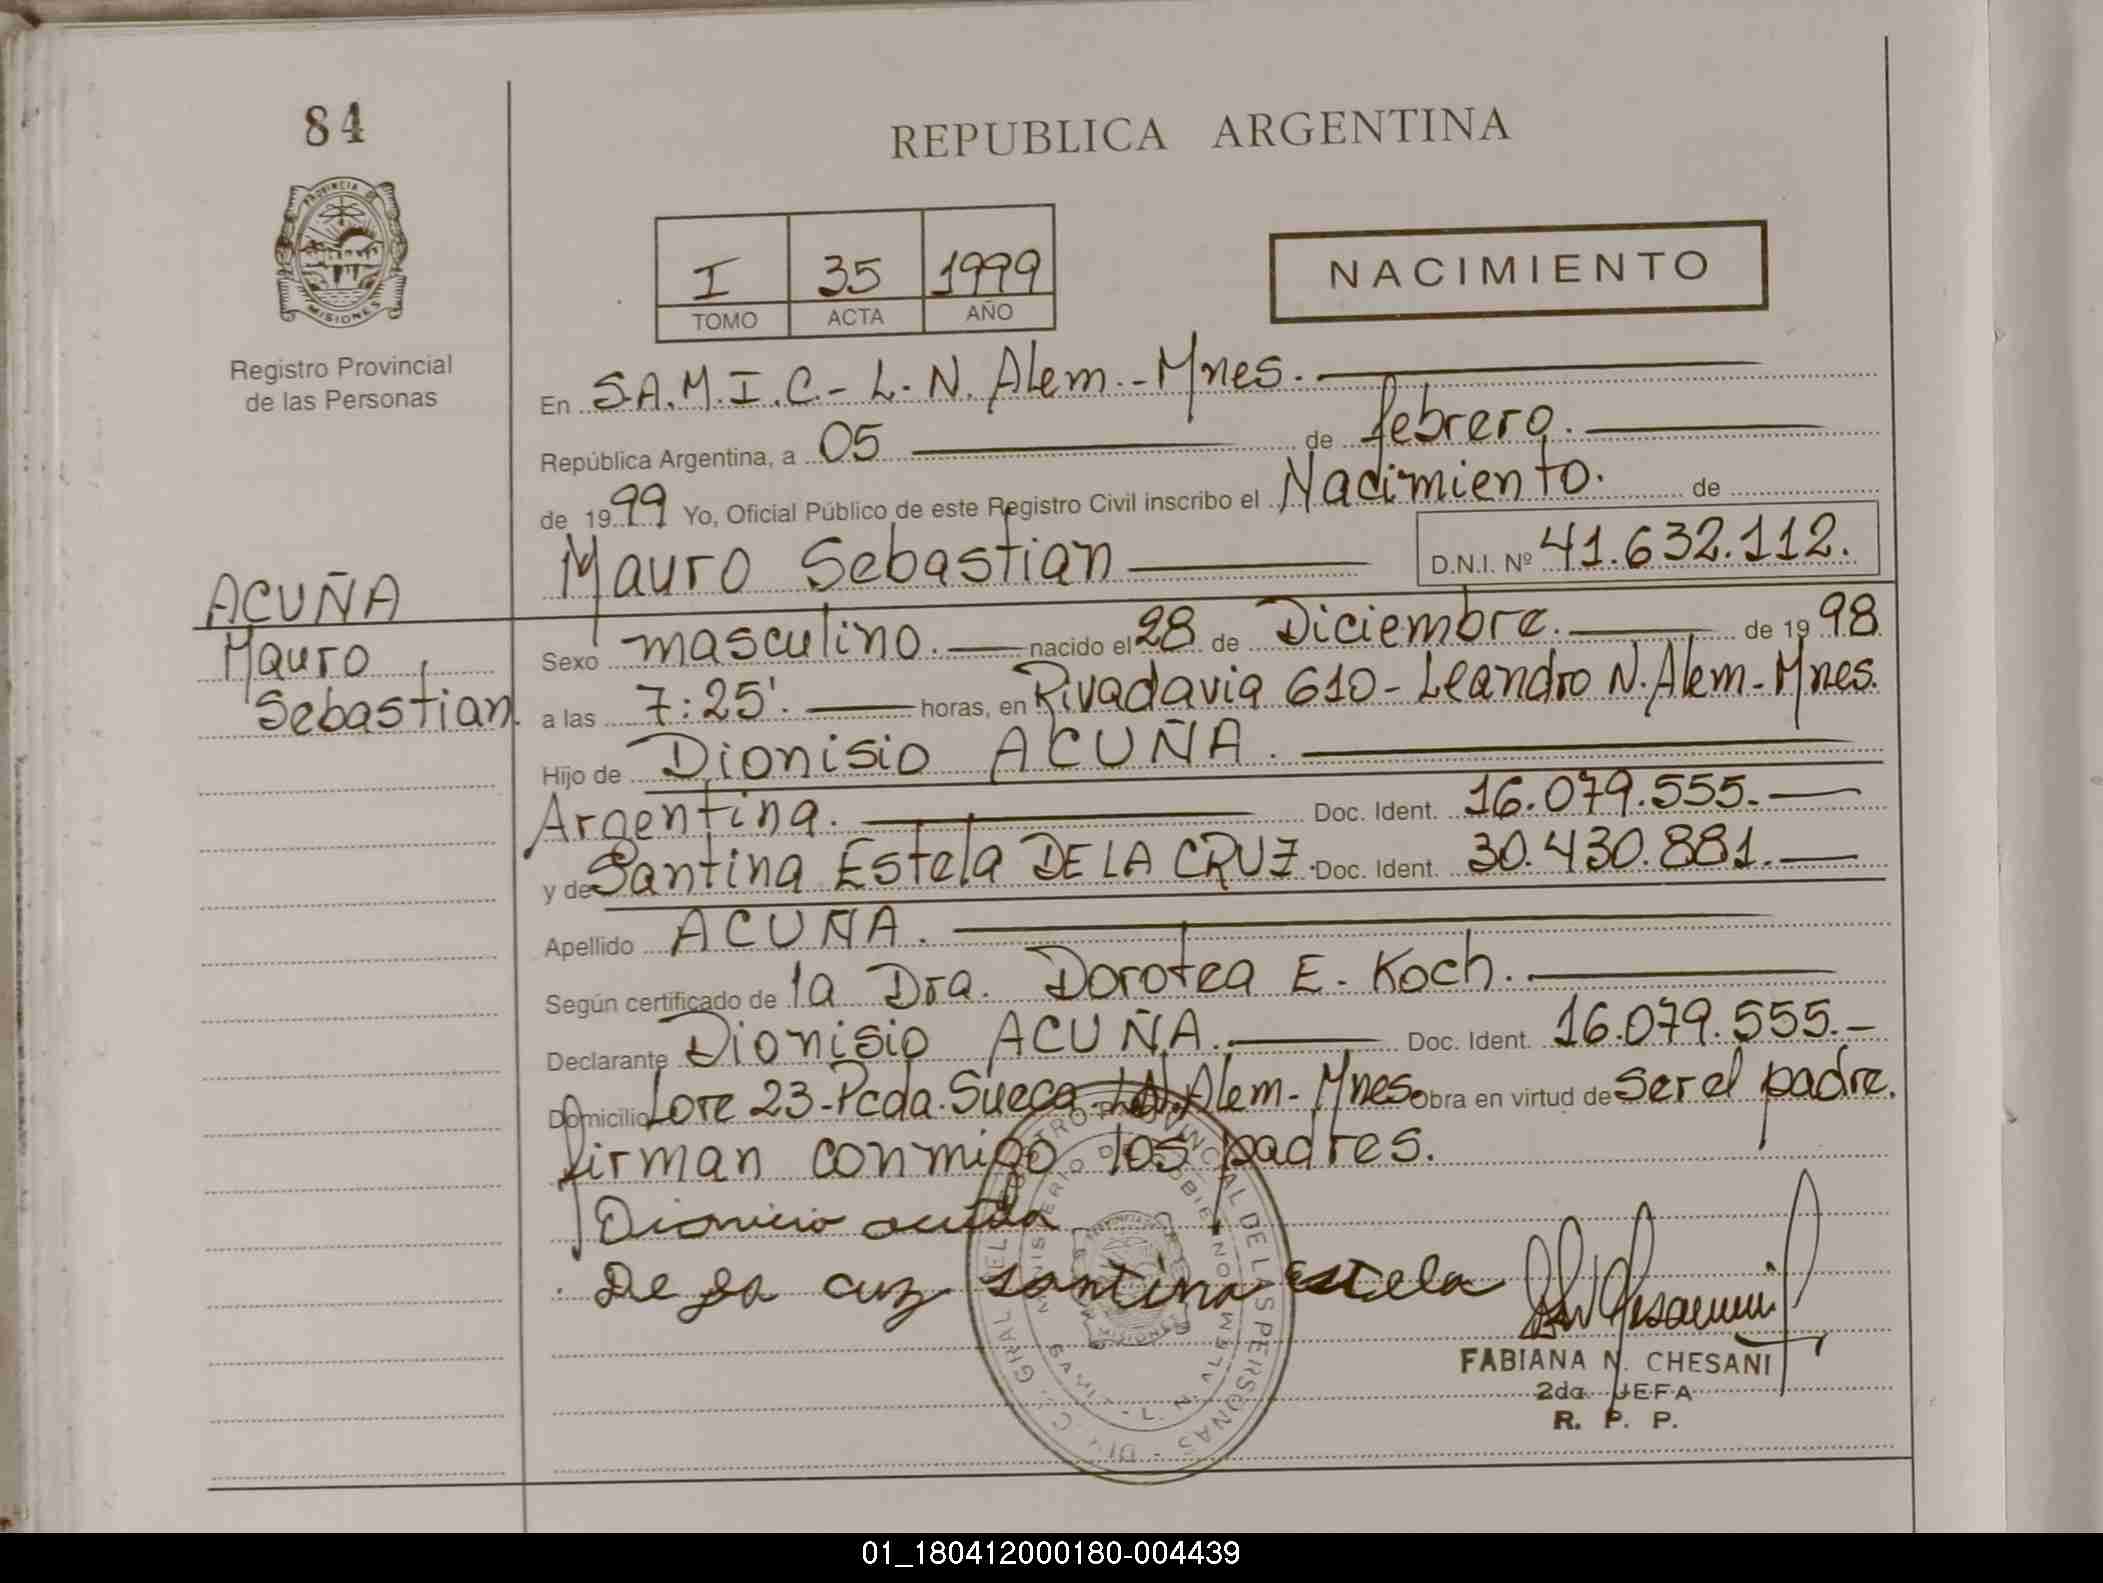 84
REPUBLICA ARGENTINA
PROVINCIA DE
MISIONES
Registro Provincial
de las Personas
I 35 1999
TOMO ACTA AÑO
NACIMIENTO
En S.A.M.I.C.- L.N. Alem.- Mnes.
República Argentina, a 05 de febrero.
de 1999 Yo, Oficial Público de este Registro Civil inscribo el Nacimiento. de
Mauro Sebastian D.N.I. Nº 41.632.112.
ACUÑA
Mauro
Sebastian.
Sexo masculino. nacido el 28 de Diciembre. de 1998
a las 7:25'. horas, en Rivadavia 610 - Leandro N. Alem - Mnes.
Hijo de Dionisio ACUÑA.
Argentina. Doc. Ident. 16.079.555.-
y de Santina Estela DE LA CRUZ. Doc. Ident. 30.430.881.-
Apellido ACUÑA.
Según certificado de la Dra. Dorotea E. Koch.
Declarante Dionisio ACUÑA. Doc. Ident. 16.079.555.-
Domicilio Lote 23-Pcda. Sueca-L.N. Alem- Mnes Obra en virtud de ser el padre.
firman conmigo los padres.
Dionicio acuña
De la cuz santina estela
REGISTRO PROVINCIAL DE LAS PERSONAS
MINISTERIO DE GOBIERNO
MISIONES
FABIANA N. CHESANI
2da. JEFA
R. P. P.
01_180412000180-004439